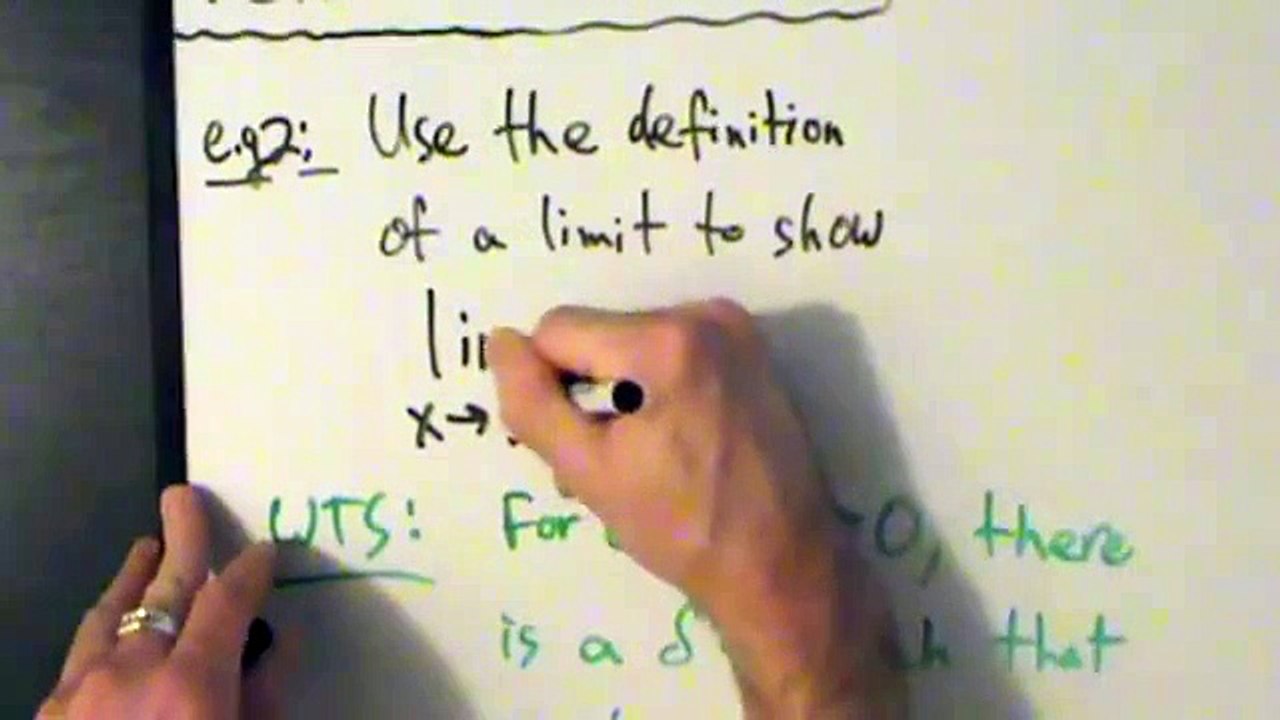 e.g2: Use the definition
of a limit to show
x→
WTS: For 0, there
is a δ that